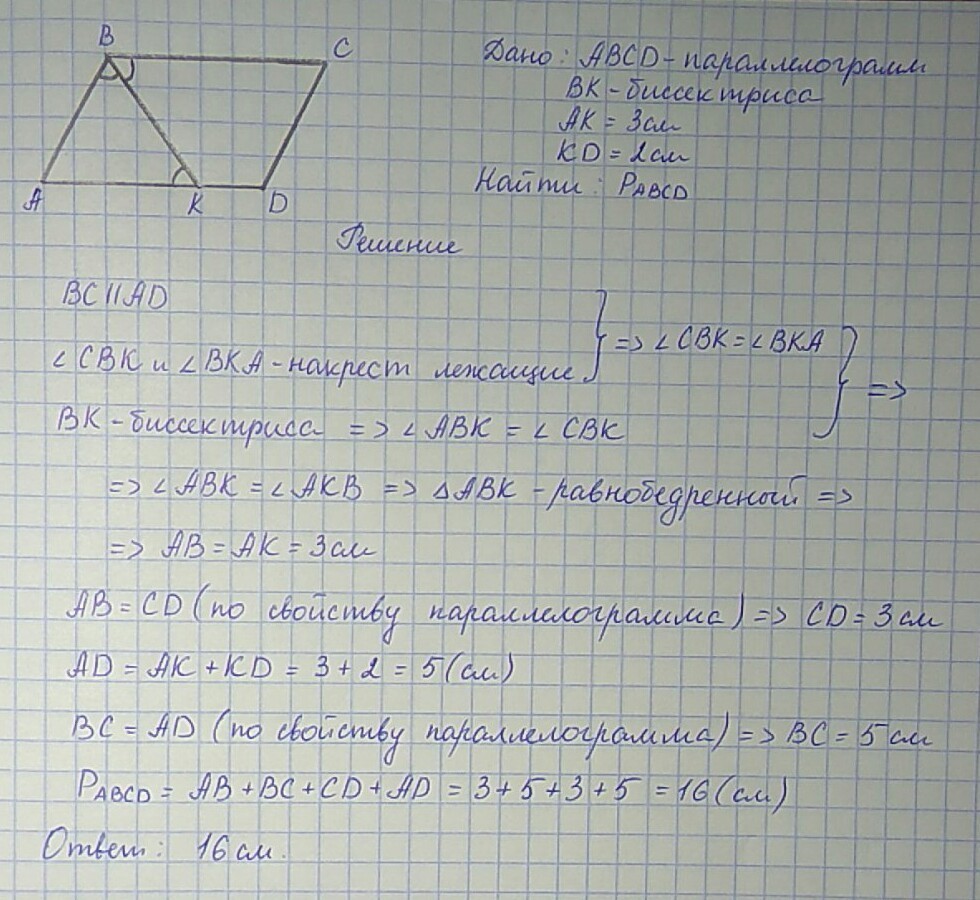 B
C
A
K
D
Дано: ABCD - параллелограмм
BK - биссектриса
AK = 3 см
KD = 2 см
Найти: PABCD
Решение
BC || AD
∠CBK и ∠BKA - накрест лежащие } => ∠CBK = ∠BKA } =>
BK - биссектриса => ∠ABK = ∠CBK
=> ∠ABK = ∠AKB => △ABK - равнобедренный =>
=> AB = AK = 3 см
AB = CD (по свойству параллелограмма) => CD = 3 см
AD = AK + KD = 3 + 2 = 5 (см)
BC = AD (по свойству параллелограмма) => BC = 5 см
PABCD = AB + BC + CD + AD = 3 + 5 + 3 + 5 = 16 (см)
Ответ: 16 см.